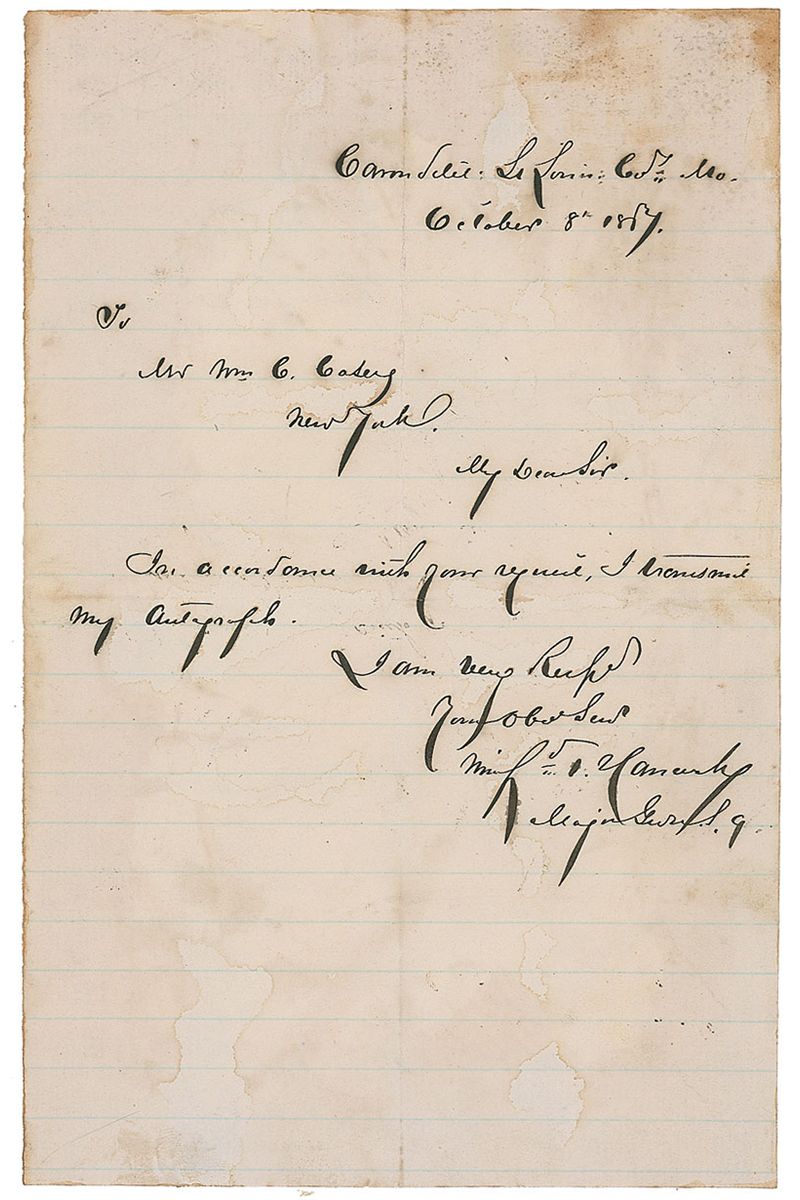 Carondelet: St Louis: Co͟y Mo.
October 8th 1867.
To
Mr Wm C.
New York.
My Dear Sir.
In accordance with your request, I transmit
my Autograph.
I am Very
Your Obdt Servt
Winf d S. Hancock
Major Genl U.S.A.